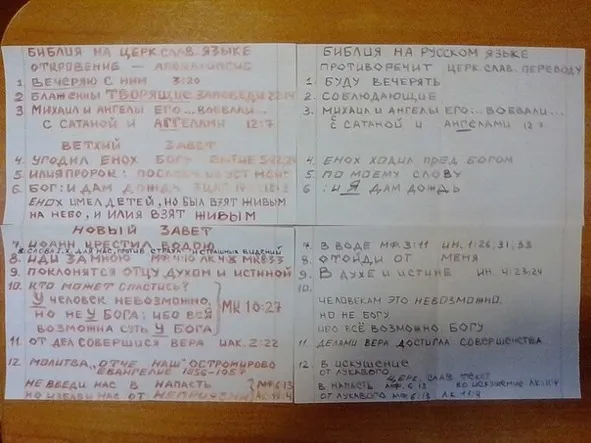 БИБЛИЯ НА ЦЕРК СЛАВ. ЯЗЫКЕ
ОТКРОВЕНИЕ — АПОКАЛИПСИС
1. ВЕЧЕРЯЮ С НИМ 3:20
2. БЛАЖЕННЫ ТВОРЯЩИЕ ЗАПОВЕДИ 22:14
3 МИХАИЛ И АНГЕЛЫ ЕГО... ВОЕВАЛИ...
С САТАНОЙ И АГГЕЛАМИ 12:7
ВЕТХИЙ ЗАВЕТ
4. УГОДИЛ ЕНОХ БОГУ БЫТИЕ
5. ИЛИЯ ПРОРОК:
6. БОГ: И ДАМ ДОЖДЬ
ЕНОХ ИМЕЛ ДЕТЕЙ, НО БЫЛ ВЗЯТ ЖИВЫМ
НА НЕБО, И ИЛИЯ ВЗЯТ ЖИВЫМ
НОВЫЙ ЗАВЕТ
7. ИОАНН КРЕСТИЛ ВОДОЮ
8. ИДИ ЗА МНОЮ МФ 4:10 ЛК 4:8 МК 8:33
9. ПОКЛОНЯТСЯ ОТЦУ ДУХОМ И ИСТИНОЙ
10. КТО МОЖЕТ СПАСТИСЬ?
У ЧЕЛОВЕК НЕВОЗМОЖНО,
НО НЕ У БОГА; ИБО ВСЯ
ВОЗМОЖНА СУТЬ У БОГА
МК 10:27
11 ОТ ДЕЛ СОВЕРШИСЯ ВЕРА ИАК. 2:22
12. МОЛИТВА „ОТЧЕ НАШ" ОСТРОМИРОВО
ЕВАНГЕЛИЕ 1056-1057
НЕ ВВЕДИ НАС В НАПАСТЬ
НО ИЗБАВИ НАС ОТ НЕПРИЯЗНИ
МФ 6:13
БИБЛИЯ НА РУССКОМ ЯЗЫКЕ
ПРОТИВОРЕЧИТ ЦЕРК СЛАВ. ПЕРЕВОДУ
1. БУДУ ВЕЧЕРЯТЬ
2. СОБЛЮДАЮЩИЕ
3. МИХАИЛ И АНГЕЛЫ ЕГО... ВОЕВАЛИ...
С САТАНОЙ И АНГЕЛАМИ 12:7
4. ЕНОХ ХОДИЛ ПРЕД БОГОМ
5. ПО МОЕМУ СЛОВУ
6. : И Я ДАМ ДОЖДЬ
7. В ВОДЕ МФ 3:11 ИН. 1:26, 31, 33
8. ОТОЙДИ ОТ МЕНЯ
9. В ДУХЕ И ИСТИНЕ ИН. 4:23-24
10.
ЧЕЛОВЕКАМ ЭТО НЕВОЗМОЖНО,
НО НЕ БОГУ
ИБО ВСЁ ВОЗМОЖНО БОГУ
11. ДЕЛАМИ ВЕРА ДОСТИГЛА СОВЕРШЕНСТВА.
12. В ИСКУШЕНИЕ
ОТ ЛУКАВОГО
ЦЕРК. СЛАВ ТЕКСТ
В НАПАСТЬ МФ. 6:13 ВО ИСКУШЕНИЕ ЛК 11:4
ОТ ЛУКАВОГО МФ 6:13 ЛК. 11:4